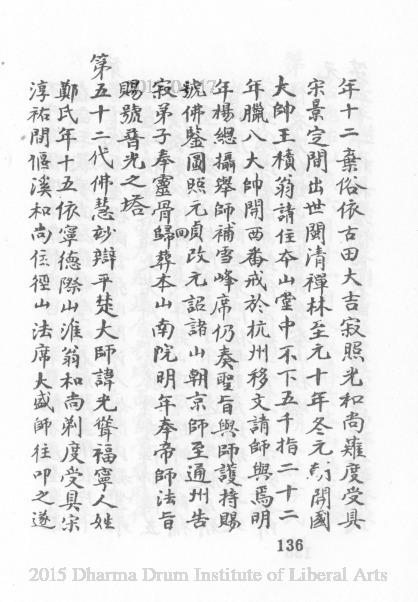 年十二棄俗依古田大吉寂照光和尚薙度受具
宋景定間出世閩清禪林至元十年冬元 開國
大帥王積翁請住本山堂中不下五千指二十二
年臘八大帥開西番戒於杭州移文請師與焉明
年楊總攝舉師補雪峰席仍奏聖旨與師護持賜
號佛鑒圓照元 改元詔諸山朝京師至通州告
寂弟子奉靈骨歸葬本山南院明年奉帝師法旨
賜號普光之塔
第五十二代佛慧妙辯平楚大師諱光聳福寧人姓
鄭氏年十五依寧德際山淮翁和尚剃度受具宋
淳祐間偃溪和尚住徑山法席大盛師往叩之遂
136
2015 Dharma Drum Institute of Liberal Arts